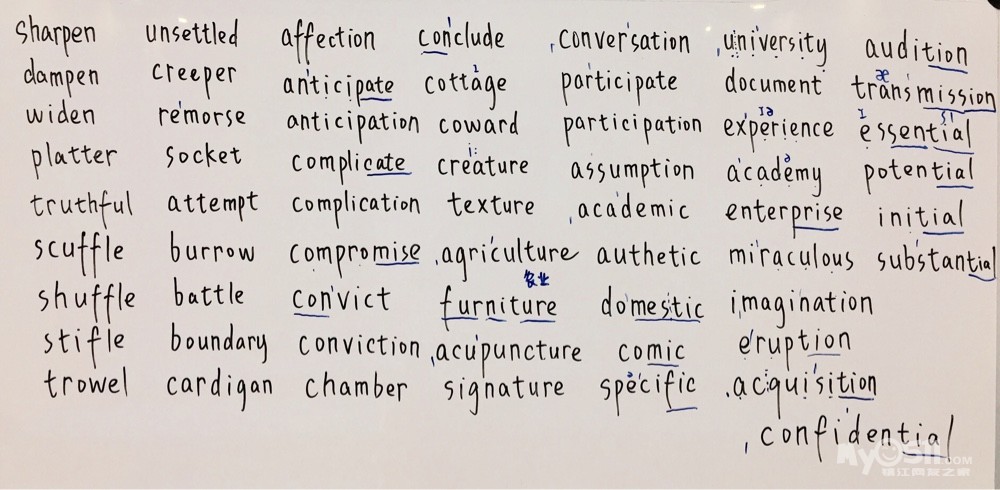 sharpen unsettled affection conclude conversation university audition
dampen creeper anticipate cottage participate document transmission
widen remorse anticipation coward participation experience essential
platter socket complicate creature assumption academy potential
truthful attempt complication texture academic enterprise initial
scuffle burrow compromise agriculture authetic miraculous substantial
农业
shuffle battle convict furniture domestic imagination
stifle boundary conviction acupuncture comic eruption
trowel cardigan chamber signature specific acquisition
confidential